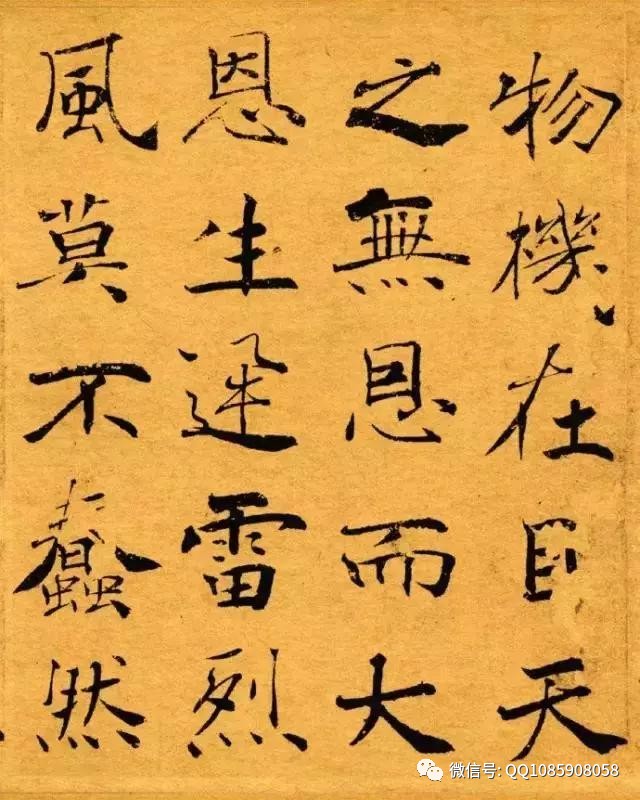 物機在目天
之無恩而大
恩生迅雷烈
風莫不蠢然
微信号: QQ1085908058